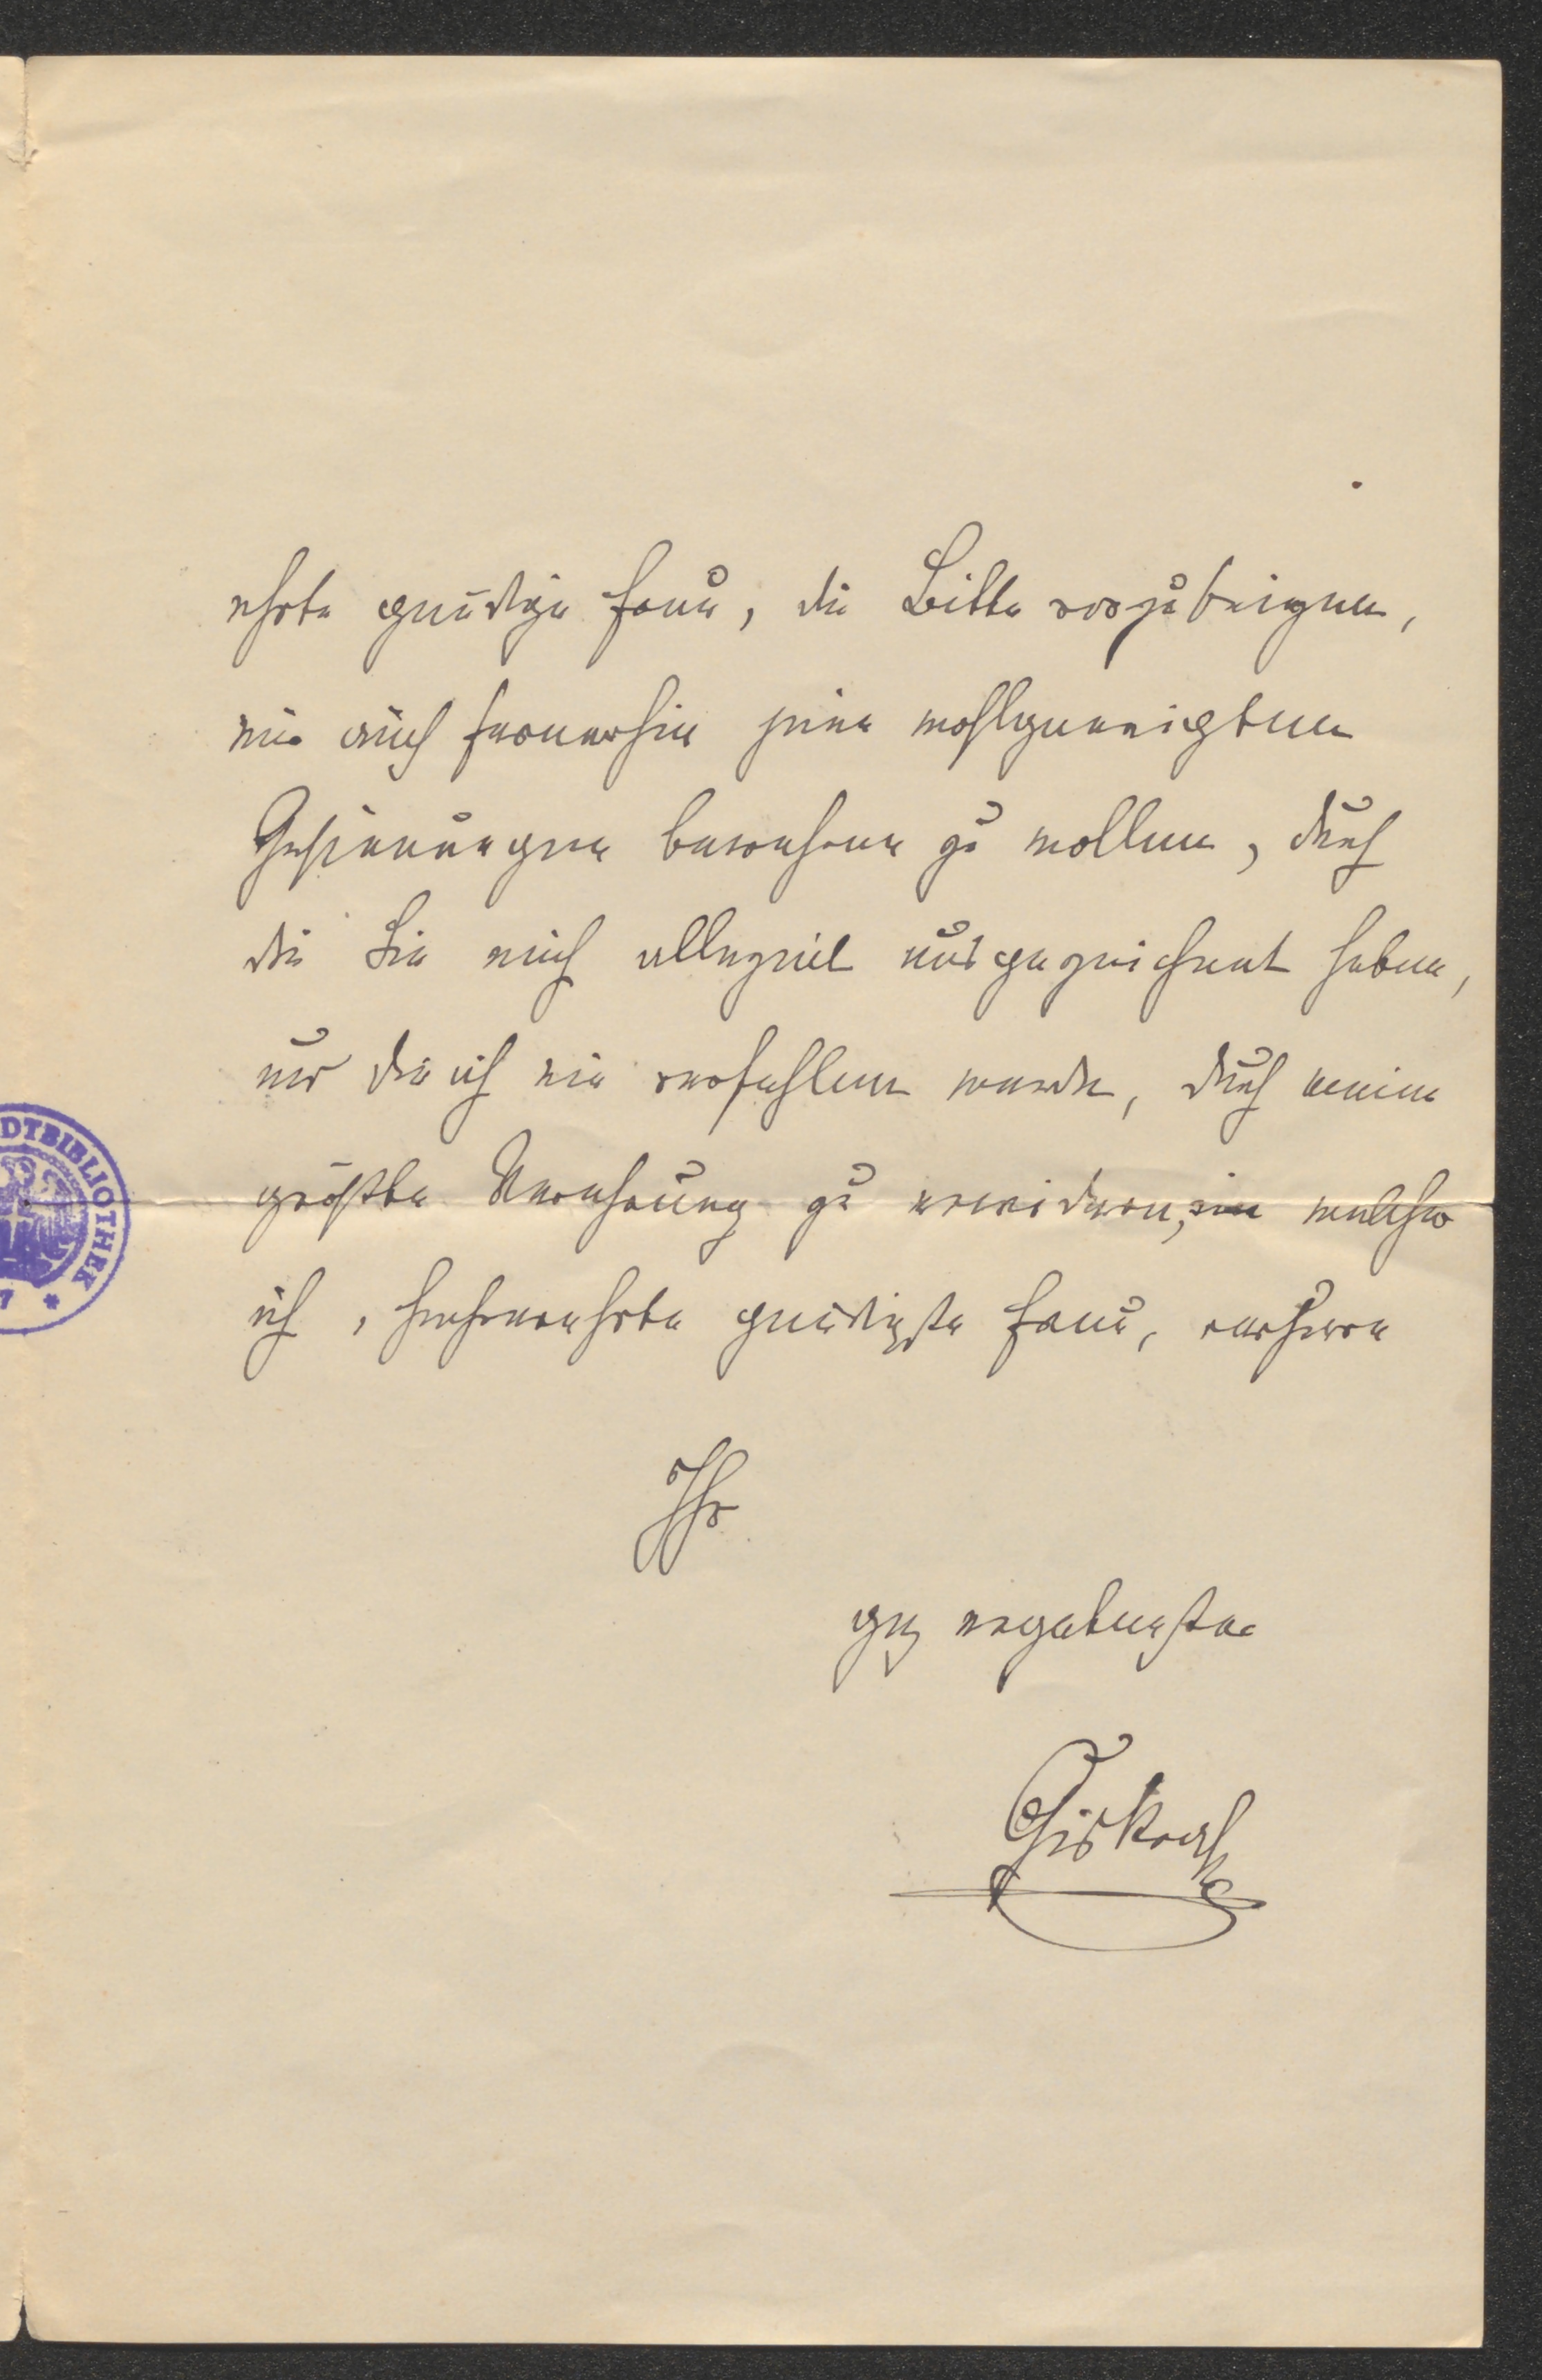 ehrte gnädige Frau, die Bitte vorzubringen,
mir auch fernerhin jene wohlgeneigten
Gesinnungen bewahren zu wollen, durch
die Sie mich allezeit ausgezeichnet haben,
und die ich nie verfehlen werde, durch meine
größte Verehrung zu erwidern, in welcher
ich, hochverehrte gnädigste Frau, verharre
Ihr
ganz ergebenster
DTBIBLIOTHEK
7 *